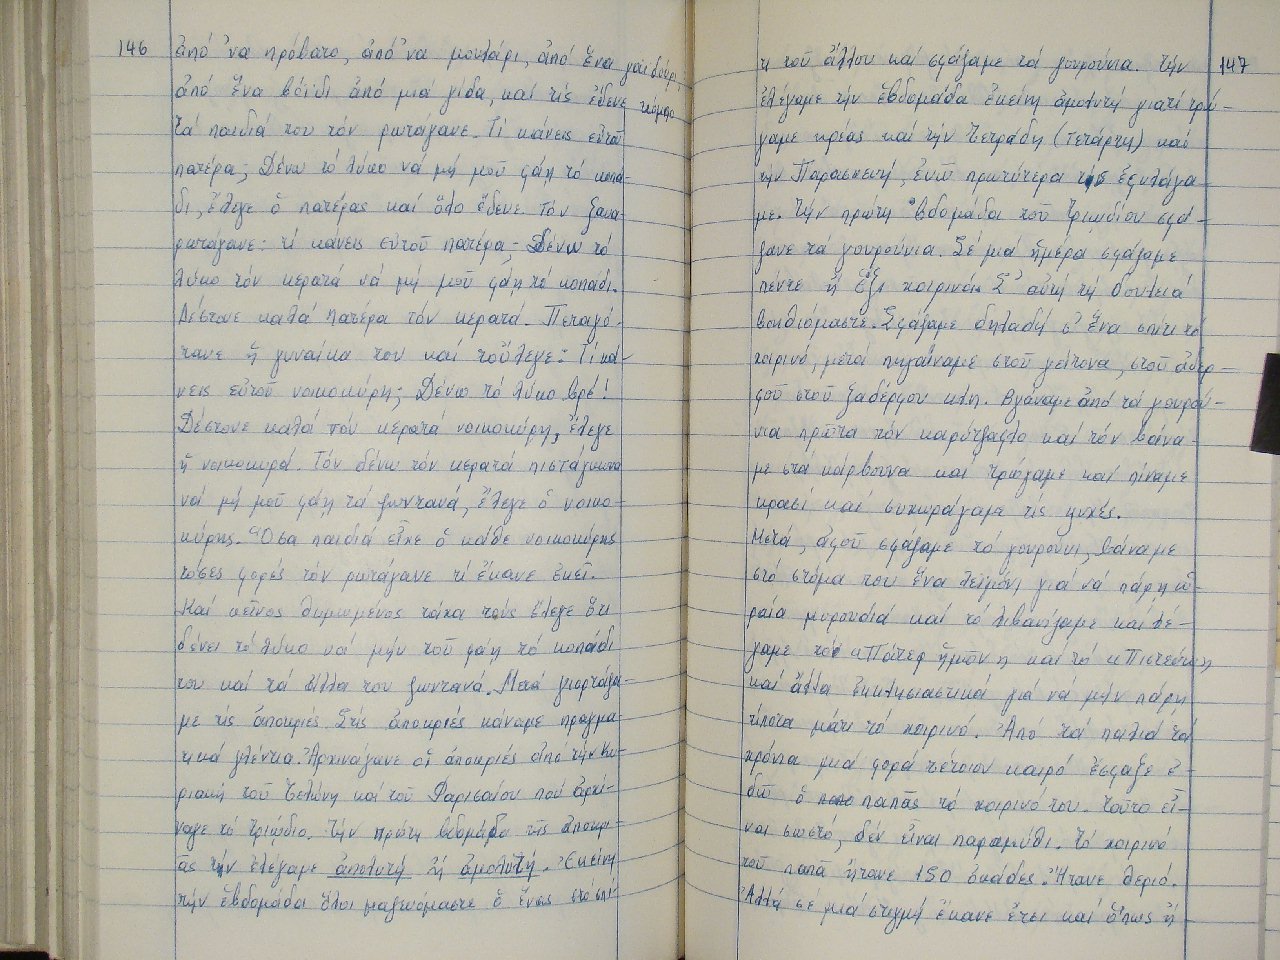 146
ἀπό ᾿να πρόβατο, ἀπό ᾿να μουλάρι, ἀπό ἕνα γαϊδούρι,
ἀπό ἕνα βόϊδι ἀπό μιά γίδα, καί τίς ἔδενε κόμπο
Τά παιδιά του τόν ρωτάγανε. Τί κάνεις εὐτοῦ
πατέρα; Δένω τό λύκο νά μή μοῦ φάη τό κοπά-
δι, ἔλεγε ὁ πατέρας καί ὅλο ἔδενε. Τόν ξανα-
ρωτάγανε: τί κάνεις εὐτοῦ πατέρα; Δένω τό
λύκο τόν κερατά νά μή μοῦ φάη τό κοπάδι.
Δέστονε καλά πατέρα τόν κερατά. Πεταγό-
τανε ἡ γυναίκα του καί τοὔλεγε: Τί κά-
νεις εὐτοῦ νοικοκύρη; Δένω τό λύκο βρέ!
Δέστονε καλά τόν κερατά νοικοκύρη, ἔλεγε
ἡ νοικοκυρά. Τόν δένω τόν κερατά πιστάγκωνα
νά μή μοῦ φάη τά ζωντανά, ἔλεγε ὁ νοικο-
κύρης. Ὅσα παιδιά εἶχε ὁ κάθε νοικοκύρης
τόσες φορές τόν ρωτάγανε τί ἔκανε ἐκεῖ.
Καί κεῖνος θυμωμένος τάχα τούς ἔλεγε ὅτι
δένει τό λύκο νά μήν τοῦ φάη τό κοπάδι
του καί τά ἄλλα του ζωντανά. Μετά γιορτάζα-
με τίς ἀποκριές. Στίς ἀποκριές κάναμε πραγμα-
τικά γλέντια. Ἀρχινάγανε οἱ ἀποκριές ἀπό τήν Κυ-
ριακή τοῦ Τελώνη καί τοῦ Φαρισαίου πού ἀρχί-
ναγε τό Τριῴδιο. Τήν πρώτη βδομάδα τῆς ἀποκρ-
ᾶς τήν ἐλέγαμε ἀπολυτή ἤ ἀμολυτή. Ἐκείνη
τήν ἑβδομάδα ὅλοι μαζευόμαστε ὁ ἕνας στό σπί-
147
τι τοῦ ἄλλου καί σφάζαμε τά γουρούνια. Τήν
ἐλέγαμε τήν ἑβδομάδα ἐκείνη ἀμολυτή γιατί τρώ-
γαμε κρέας καί τήν Τετράδη (Τετάρτη) καί
τήν Παρασκευή, ἐνῶ πρωτύτερα τίς ἐφυλάγα-
με. Τήν πρώτη ᾿βδομάδα τοῦ Τριωδίου σφά-
ζανε τά γουρούνια. Σέ μιά ἡμέρα σφάζαμε
πέντε ἤ ἕξι χοιρινά. Σ᾿ αὐτή τή δουλειά
βοηθιόμαστε. Σφάζαμε δηλαδή σ᾿ ἕνα σπίτι τό
χοιρινό, μετά πηγαίναμε στοῦ γείτονα, στοῦ ἀδερ-
φοῦ στοῦ ξαδέρφου κλπ. Βγάναμε ἀπό τά γουρού-
νια πρῶτα τόν καρύτζαφλο καί τόν βάνα-
με στά κάρβουνα καί τρώγαμε καί πίναμε
κρασί καί συχωράγαμε τίς ψυχές.
Μετά, ἀφοῦ σφάζαμε τό γουρούνι, βάναμε
στό στόμα του ἕνα λεϊμόνι γιά νά πάρη ὡ-
ραία μυρουδιά καί τό λιβανίζαμε καί λέ-
γαμε τό «Πάτερ ἡμῶν» καί τό «Πιστεύω»
καί ἄλλα ἐκκλησιαστικά γιά νά μήν πάρη
τίποτα μάτι τό χοιρινό. Ἀπό τά παλιά τά
χρόνια μιά φορά τέτοιον καιρό ἔσφαξε ἐ-
δῶ ὁ παπᾶς τό χοιρινό του. Τοῦτο εἶ-
ναι σωστό, δέν εἶναι παραμύθι. Τό χοιρινό
τοῦ παπᾶ ἤτανε 150 ὀκάδες. Ἤτανε θεριό.
Ἀλλά σέ μιά στιγμή ἔκανε ἔτσι καί ὅπως ἤ-